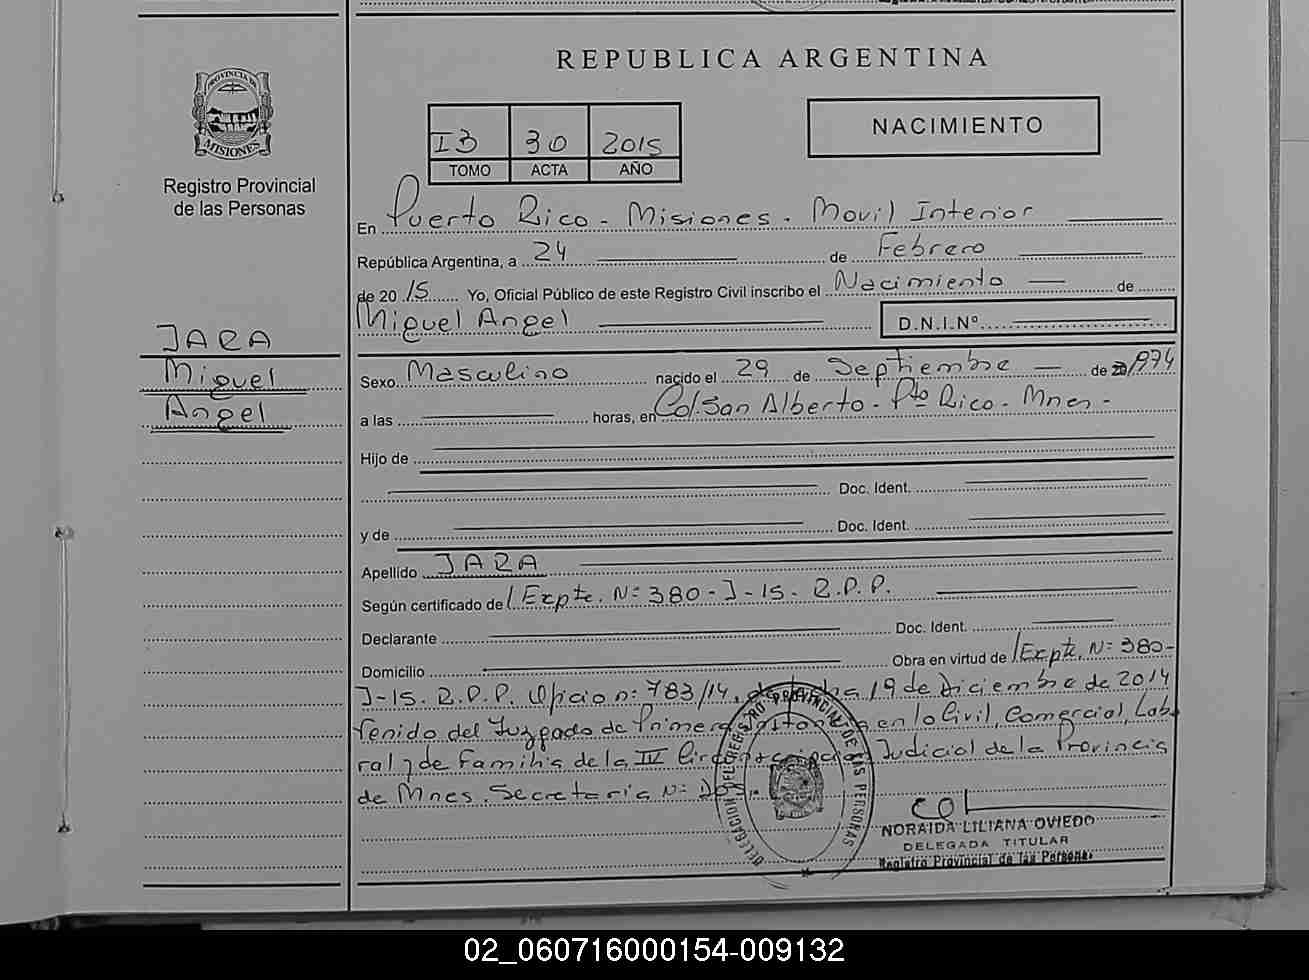 REPUBLICA ARGENTINA
PROVINCIA DE
MISIONES
Registro Provincial
de las Personas
I3 30 2015
TOMO ACTA AÑO
NACIMIENTO
En Puerto Rico - Misiones - Movil Interior
República Argentina, a 24 de Febrero
de 2015 Yo, Oficial Público de este Registro Civil inscribo el Nacimiento de
Miguel Angel D.N.I.Nº
JARA
Miguel
Angel
Sexo Masculino nacido el 29 de Septiembre de 1974
a las horas, en Col. San Alberto - Pto Rico - Mnes -
Hijo de
Doc. Ident.
y de Doc. Ident.
Apellido JARA
Según certificado de / Expte. Nº 380 - J - 15 - R.P.P.
Declarante Doc. Ident.
Domicilio Obra en virtud de / Expte. Nº 380-
J-15. R.P.P. Oficio nº 783/14, de fecha 19 de Diciembre de 2014
venido del Juzgado de Primera Instancia en lo Civil, Comercial, Labo
ral y de Familia de la IV Circunscripcion Judicial de la Provincia
de Mnes. Secretaria Nº Dos.
DELEGACION DEL REGISTRO PROVINCIAL DE LAS PERSONAS
NORAIDA LILIANA OVIEDO
DELEGADA TITULAR
Registro Provincial de las Personas
02_060716000154-009132